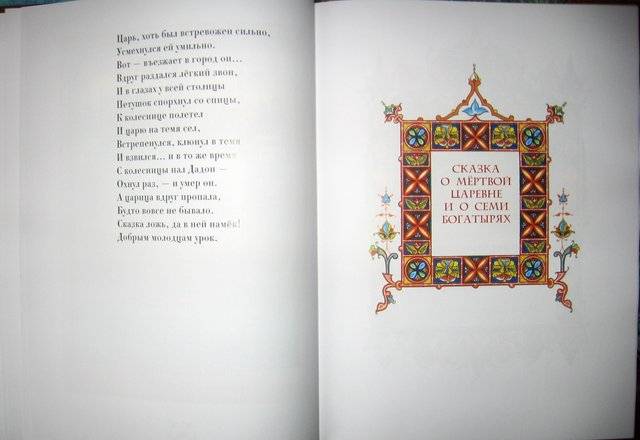 Царь, хоть был встревожен сильно,
Усмехнулся ей умильно.
Вот — въезжает в город он...
Вдруг раздался лёгкий звон,
И в глазах у всей столицы
Петушок спорхнул со спицы,
К колеснице полетел
И царю на темя сел,
Встрепенулся, клюнул в темя
И взвился... и в то же время
С колесницы пал Дадон —
Охнул раз, — и умер он.
А царица вдруг пропала,
Будто вовсе не бывало.
Сказка ложь, да в ней намёк!
Добрым молодцам урок.
СКАЗКА
О МЁРТВОЙ
ЦАРЕВНЕ
И О СЕМИ
БОГАТЫРЯХ